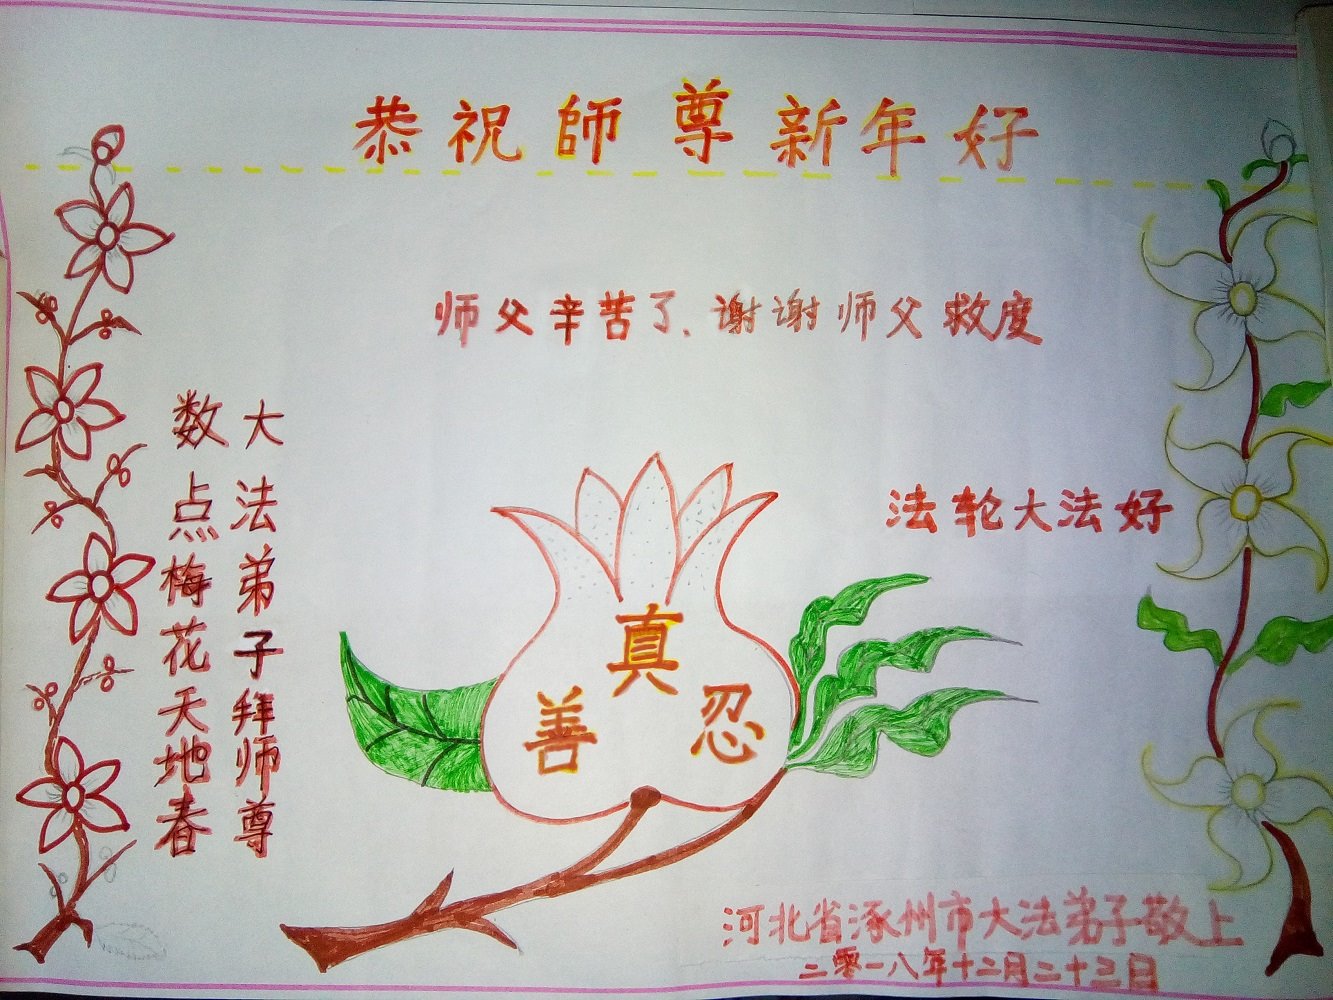 恭祝師尊新年好
师父辛苦了、谢谢师父救度
大法弟子拜师尊
数点梅花天地春
法轮大法好
真
善
忍
河北省涿州市大法弟子敬上
二零一八年十二月二十三日